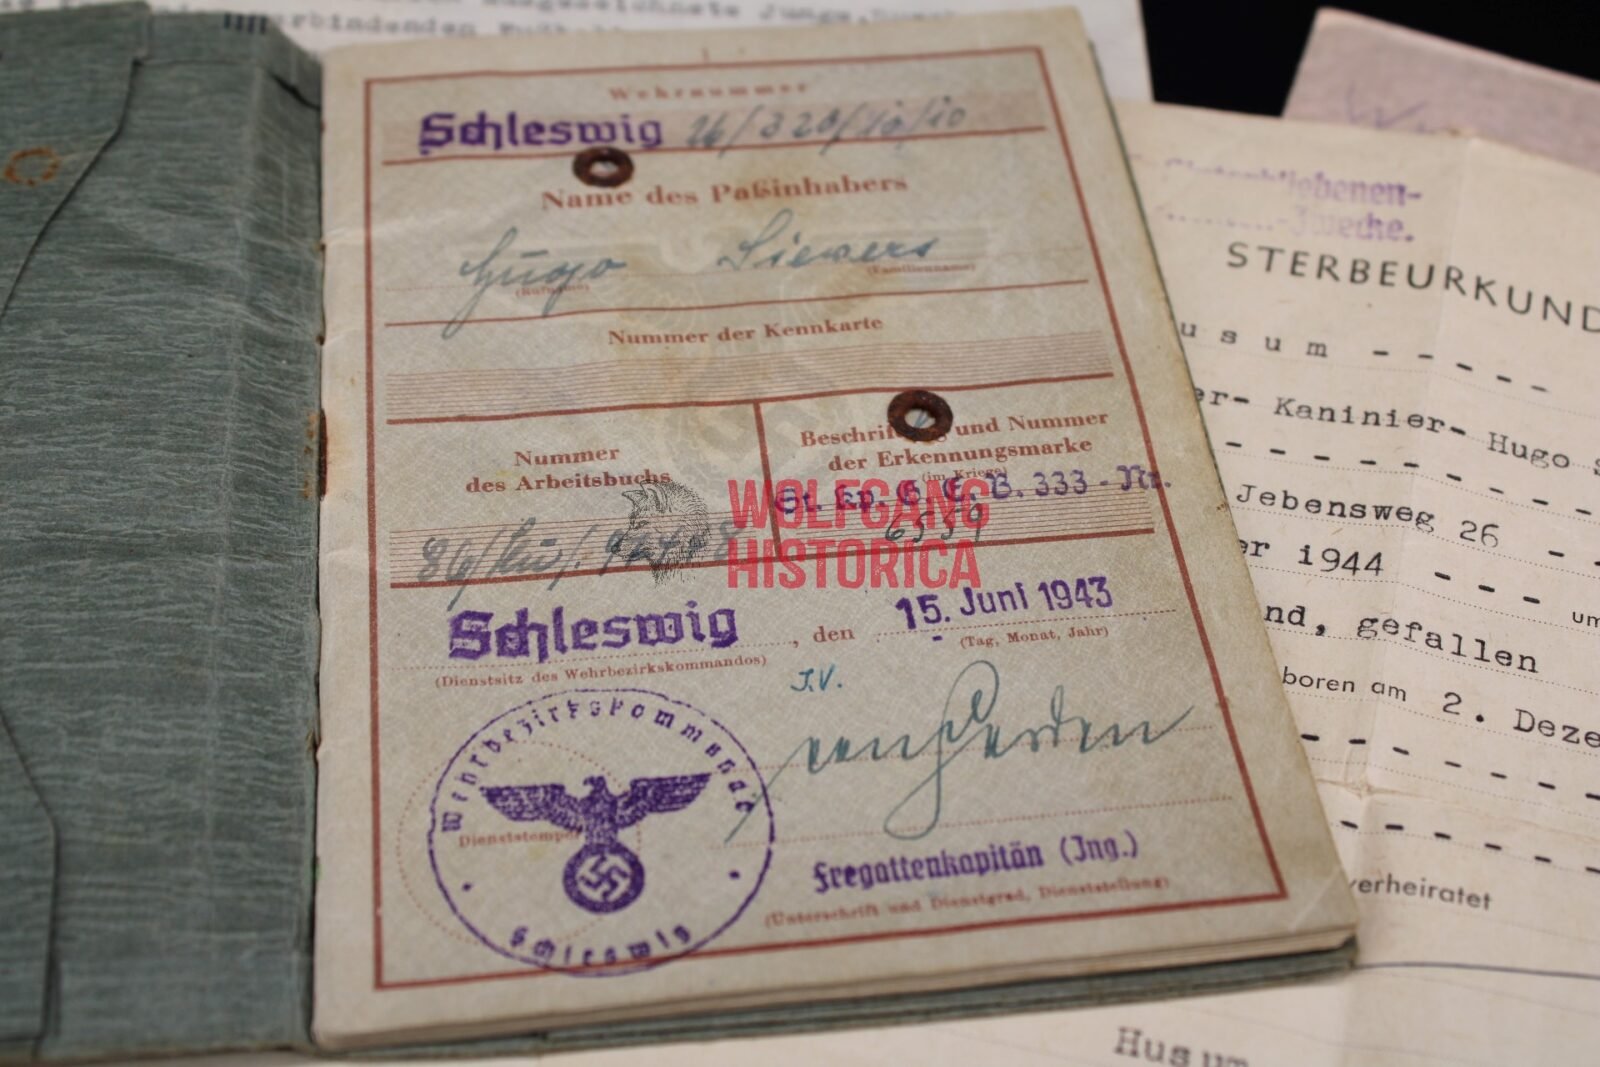 Wehrnummer
Schleswig 26/320/10/10
Name des Paßinhabers
Hugo Sievers
(Rufname) (Familienname)
Nummer der Kennkarte
Nummer
des Arbeitsbuchs
Beschriftung und Nummer
der Erkennungsmarke
(im Kriege)
St. Kp. G. E. B. 333 - Nr.
6559
Schleswig, den 15. Juni 1943
(Dienstsitz des Wehrbezirkskommandos) (Tag, Monat, Jahr)
J.V.
Wehrbezirkskommando
Dienststempel
Schleswig
Fregattenkapitän (Ing.)
(Unterschrift und Dienstgrad, Dienststellung)
WOLFGANG
HISTORICA
ausgezeichnete Junge
Zwecke.
STERBEURKUND
usum - - - - -
er- Kaninier- Hugo S
Jebensweg 26 - -
er 1944 - - - um
nd, gefallen
boren am 2. Deze
verheiratet
Husum